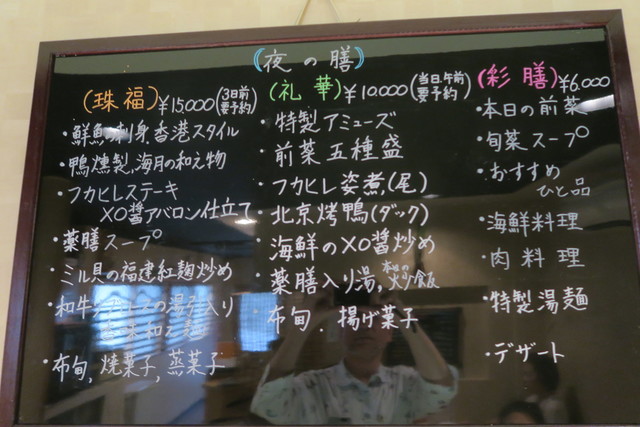 (夜の膳)
(珠福)¥15000(3日前要予約)
・鮮魚の刺身香港スタイル
・鴨燻製、海月の和え物
・フカヒレステーキ
XO醤アバロン仕立て
・薬膳スープ
・ミル貝の福建紅麹炒め
・布甸,焼菓子,蒸菓子
(礼華)¥10.000(当日,午前要予約)
・特製アミューズ
・前菜五種盛
・フカヒレ姿煮(尾)
・北京烤鴨(ダック)
・海鮮のXO醤炒め
・薬膳入り湯,本日の炒飯
・布甸.揚げ菓子
(彩膳)¥6.000
・本日の前菜
・旬菜スープ
・おすすめ
ひと品
・海鮮料理
・肉料理
・特製湯麺
・デザート